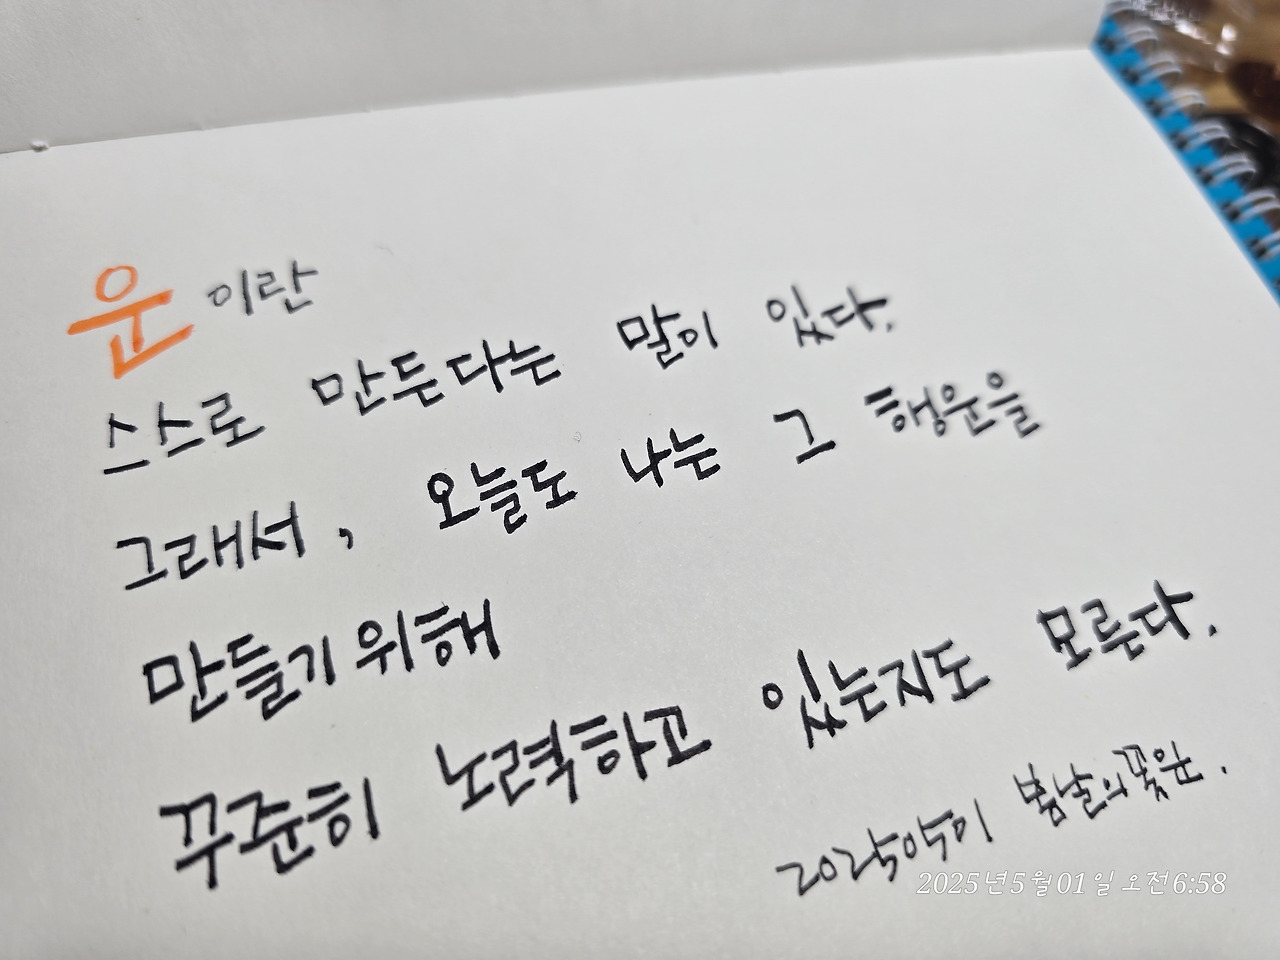 운이란
스스로 만든다는 말이 있다.
그래서, 오늘도 나는 그 행운을
만들기위해
꾸준히 노력하고 있는지도 모른다.
20250501 봄날의꽃윤.
2025년5월01일 오전6:58